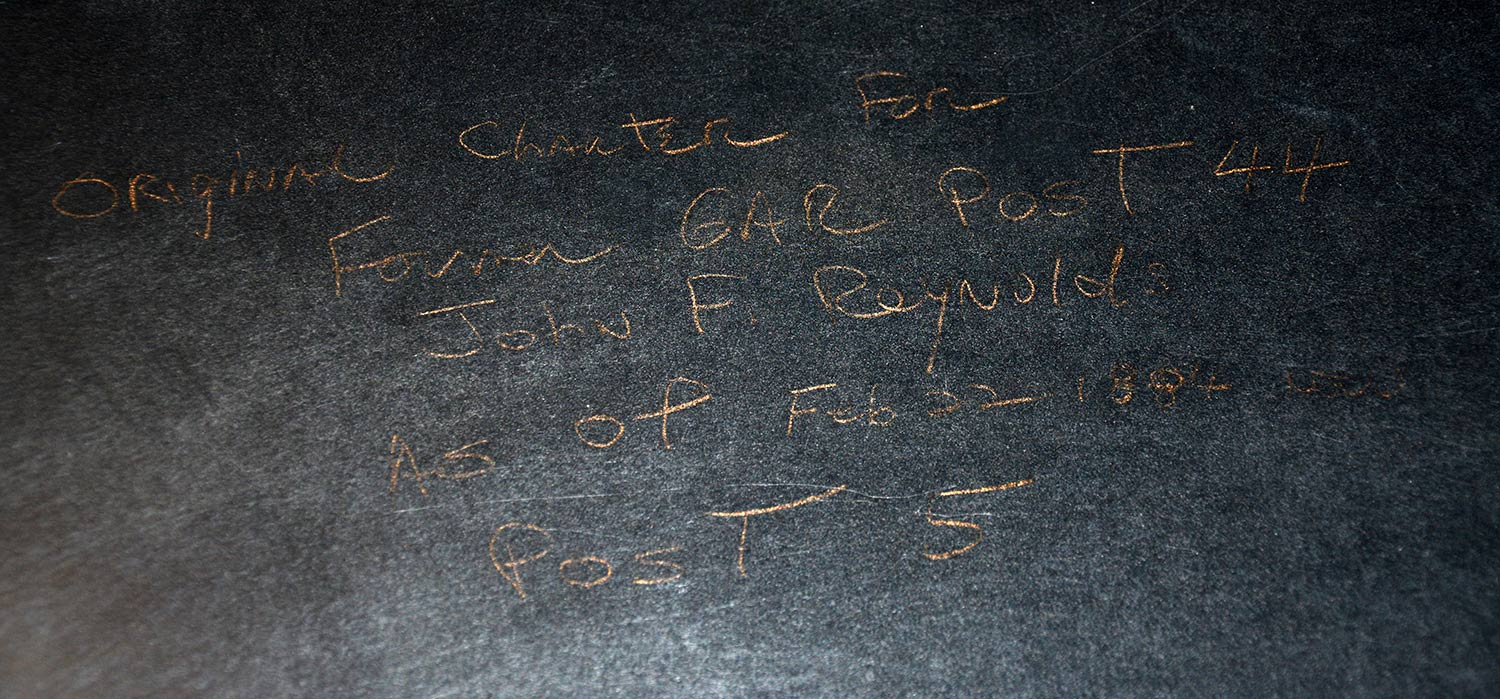 Original Charter For
Found GAR Post 44
John F. Reynolds
As of Feb 22 1884 now
Post 5